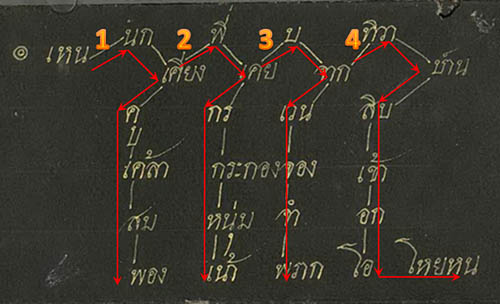 1 2 3 4
๏ เหน นก พี่ บ ทิวา
เสียง เคย จาก บ้าน
คู กร เวน สิบ
เคล้า กระกอง จอง เช้า
สม หนุ่ม จำ อก
พอง เน้า พราก โอ้ โหยหน